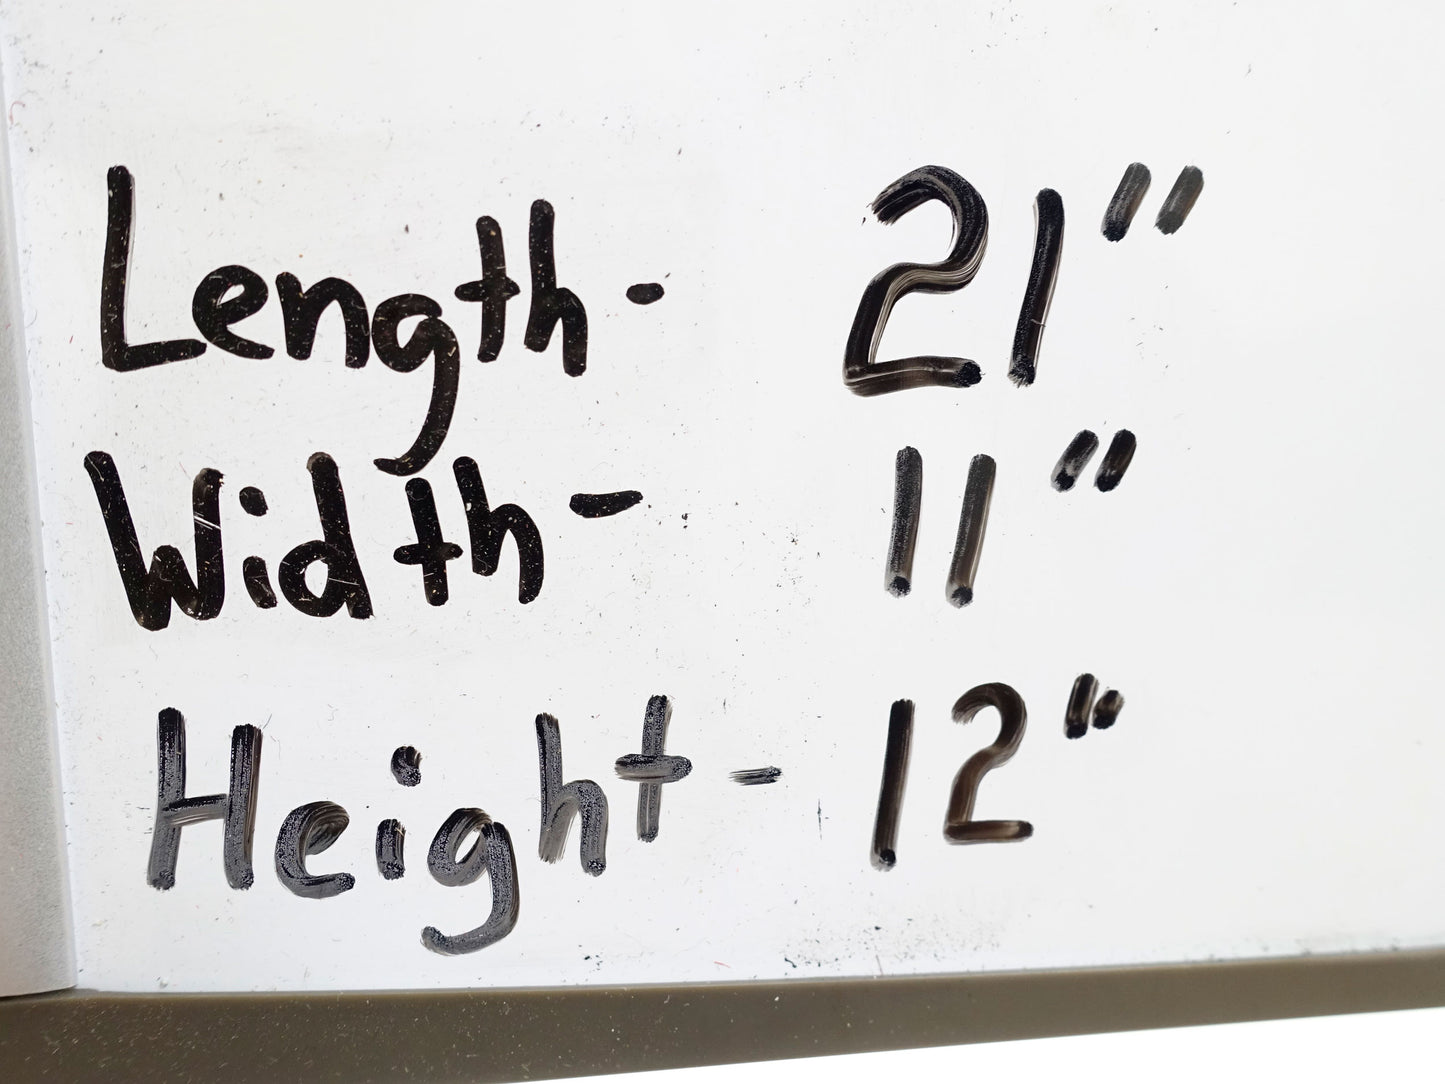 Length- 21"
Width- 11"
Height- 12"